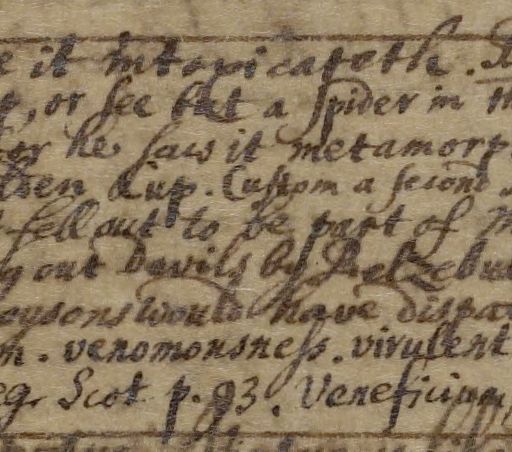 it intoxicateth.
, or see but a spider in
he saw it metamorp
Cup. Custom a second
fell out to be part of
out Devils by Belzebu
oysons would have dispa
m. venomousness. virulent
eg. Scot p. 93. Veneficium